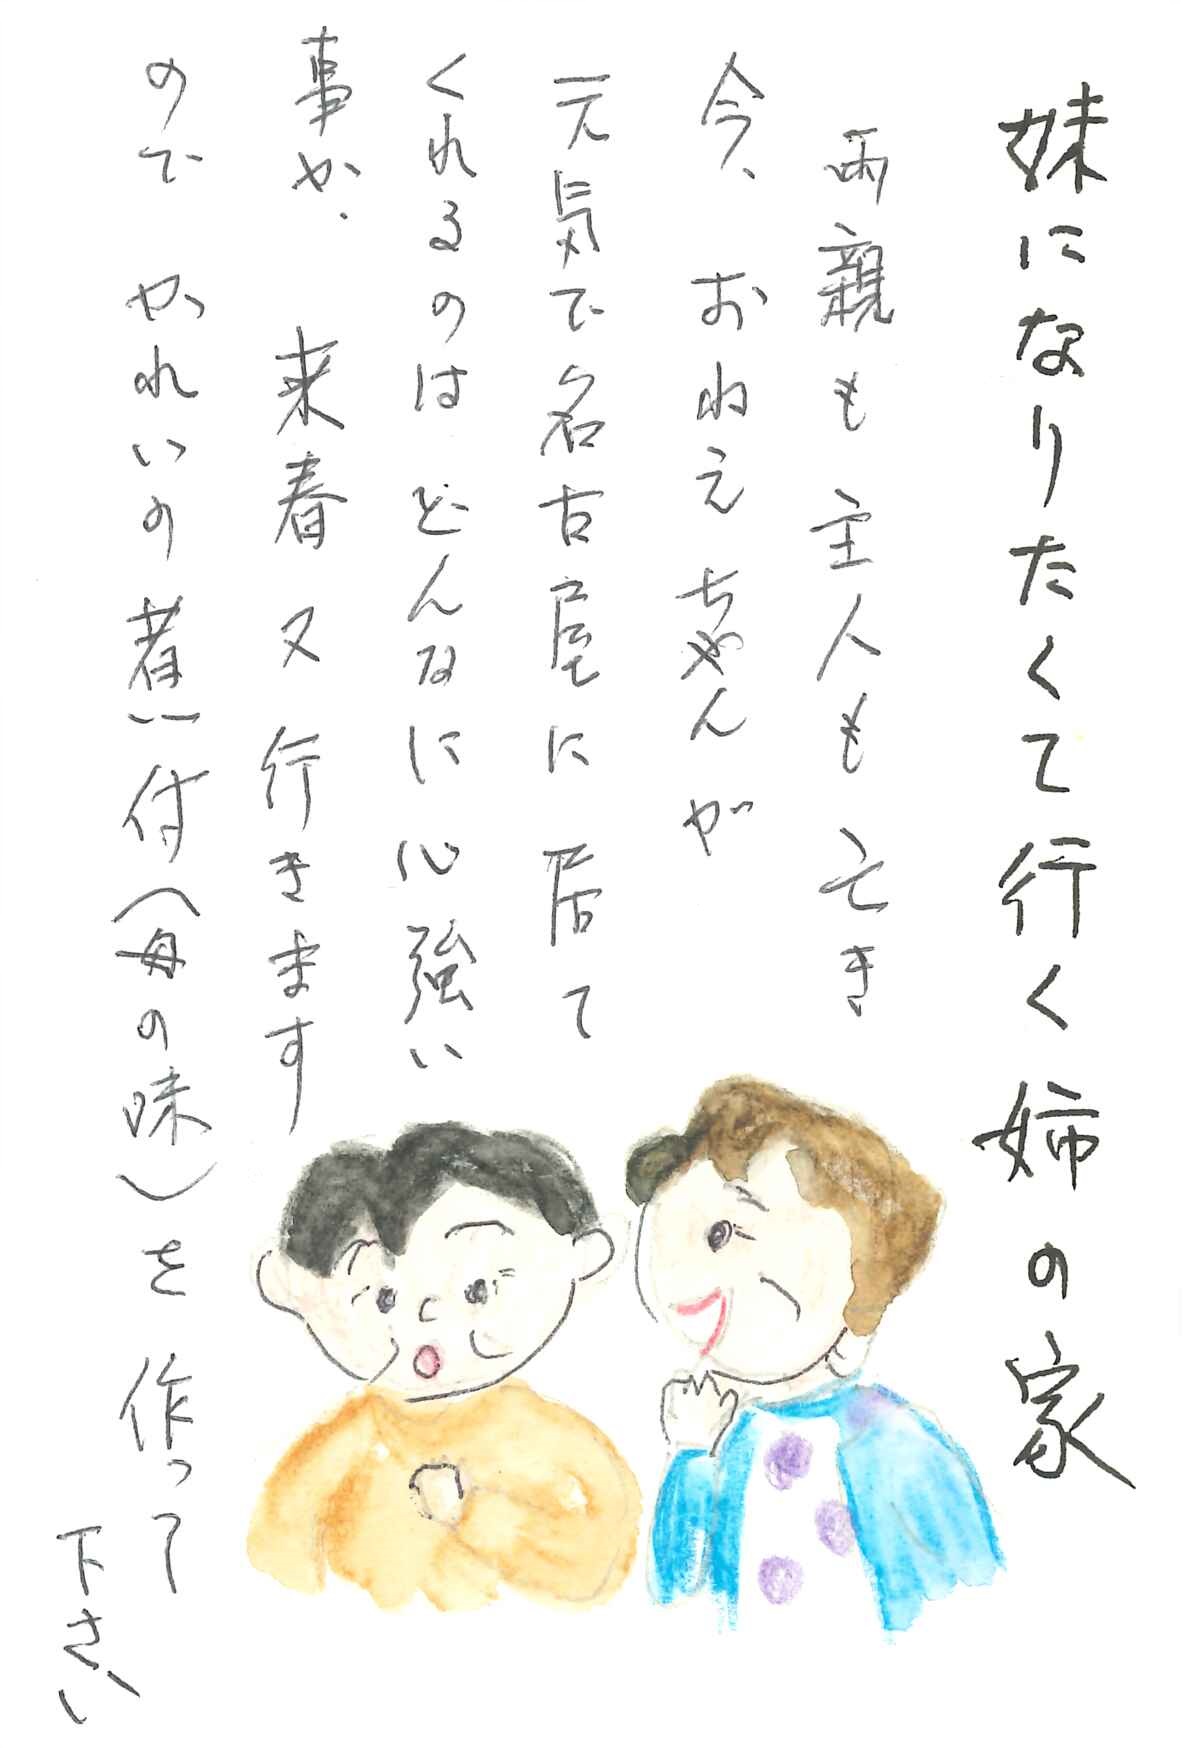 妹になりたくて行く姉の家
両親も主人も亡き
今、おねえちゃんが
元気で名古屋に居て
くれるのはどんなに心強い
事か. 来春又行きます
ので かれいの煮付(母の味)を作って
下さい